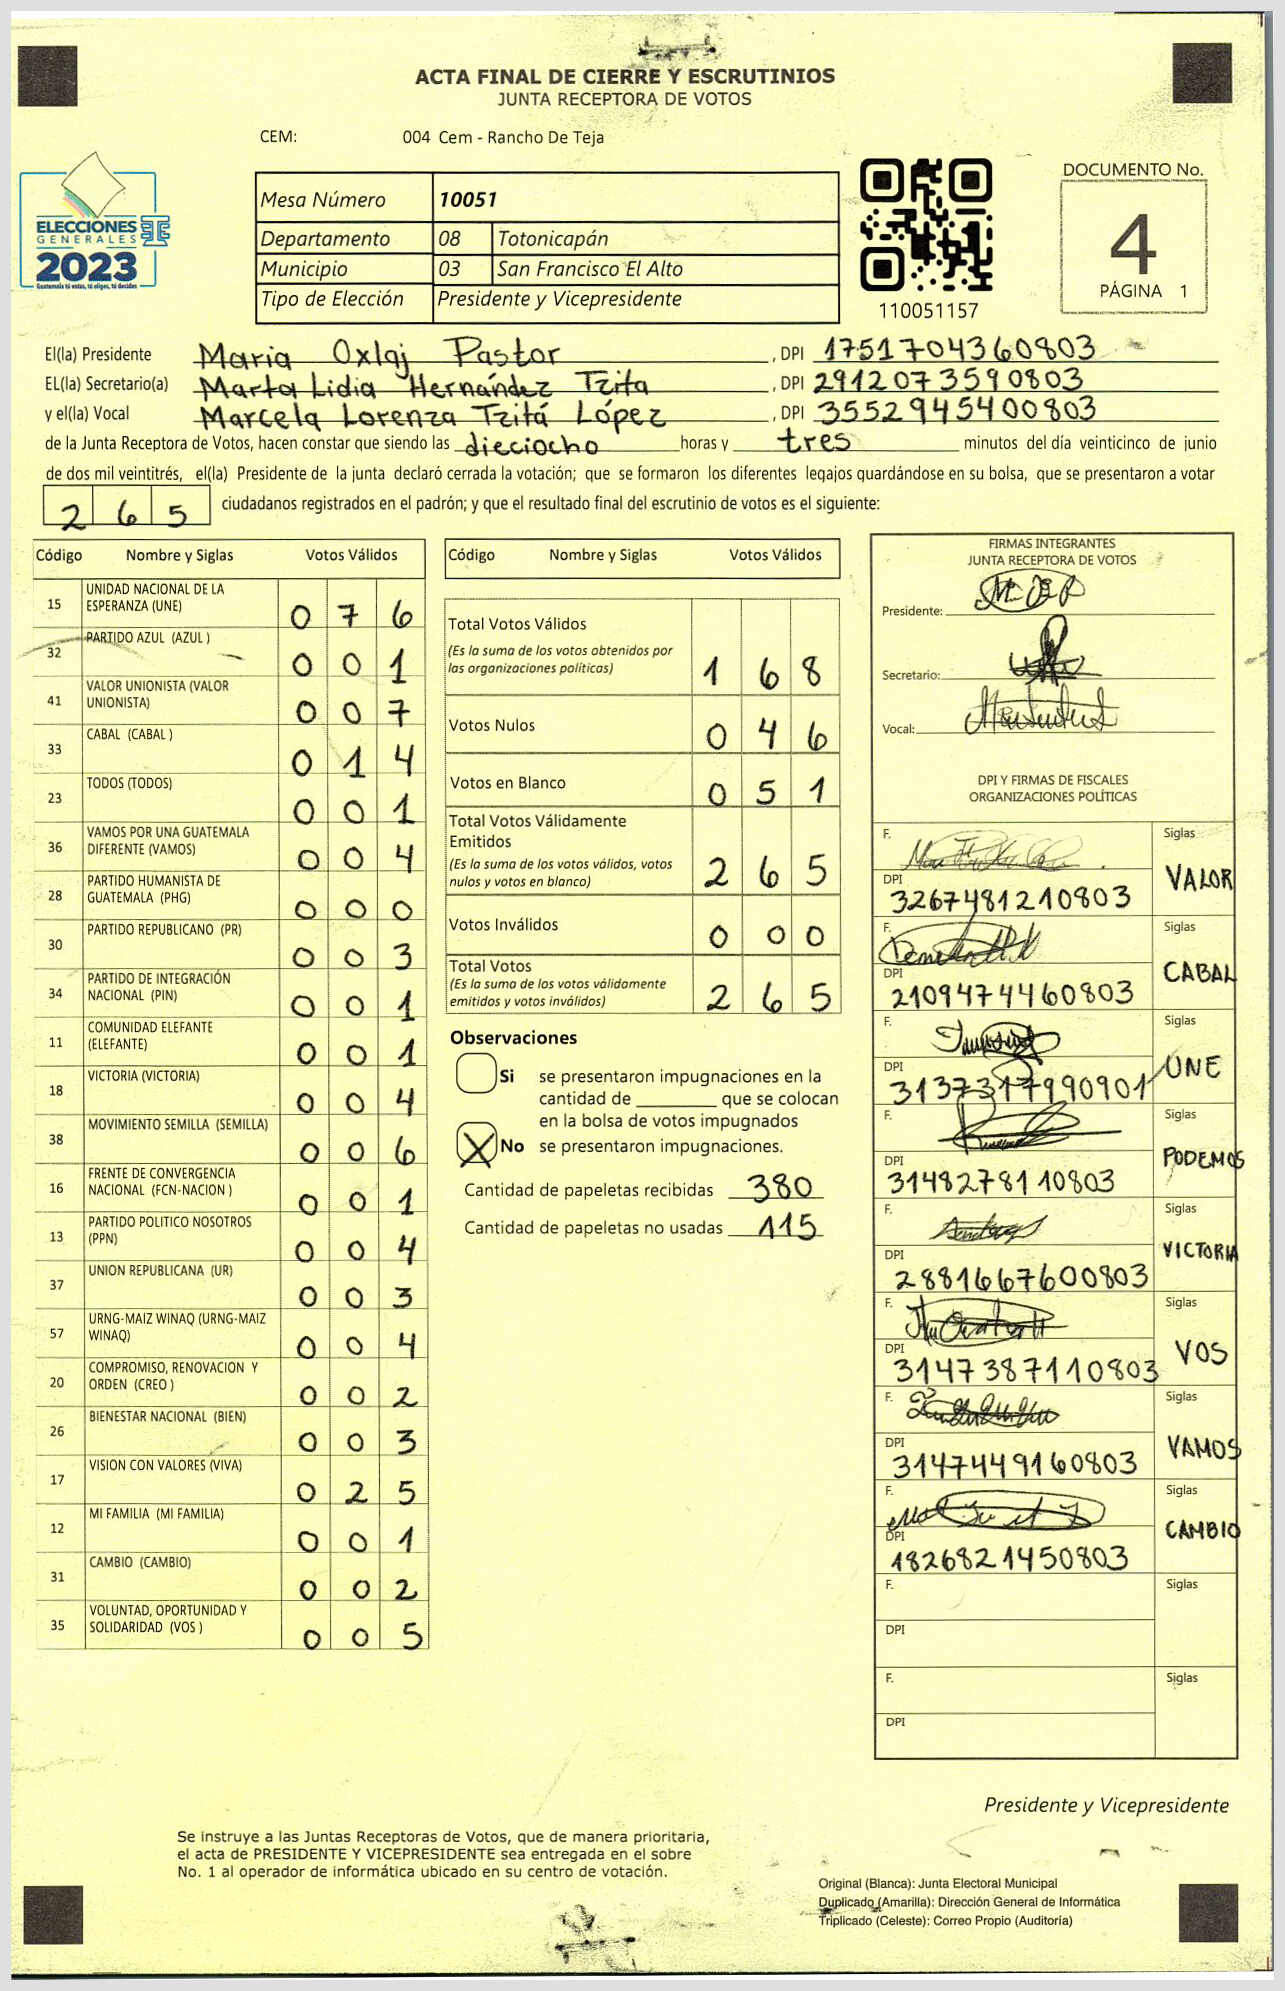 ACTA FINAL DE CIERRE Y ESCRUTINIOS
JUNTA RECEPTORA DE VOTOS
CEM: 004 Cem - Rancho De Teja
ELECCIONES
GENERALES
2023
Guatemala tú votas, tú eliges, tú decides
Mesa Número 10051
Departamento 08 Totonicapán
Municipio 03 San Francisco El Alto
Tipo de Elección Presidente y Vicepresidente
110051157
DOCUMENTO No.
4
PÁGINA 1
El(la) Presidente Maria Oxlaj Pastor, DPI 1751704360803
EL(la) Secretario(a) Marta Lidia Hernández Tzita, DPI 2912073590803
y el(la) Vocal Marcela Lorenza Tzitá López, DPI 3552945400803
de la Junta Receptora de Votos, hacen constar que siendo las dieciocho horas y tres minutos del día veinticinco de junio
de dos mil veintitrés, el(la) Presidente de la junta declaró cerrada la votación; que se formaron los diferentes legajos guardándose en su bolsa, que se presentaron a votar
265 ciudadanos registrados en el padrón; y que el resultado final del escrutinio de votos es el siguiente:
Código Nombre y Siglas Votos Válidos
15 UNIDAD NACIONAL DE LA ESPERANZA (UNE) 0 7 6
32 PARTIDO AZUL (AZUL ) 0 0 1
41 VALOR UNIONISTA (VALOR UNIONISTA) 0 0 7
33 CABAL (CABAL ) 0 1 4
23 TODOS (TODOS) 0 0 1
36 VAMOS POR UNA GUATEMALA DIFERENTE (VAMOS) 0 0 4
28 PARTIDO HUMANISTA DE GUATEMALA (PHG) 0 0 0
30 PARTIDO REPUBLICANO (PR) 0 0 3
34 PARTIDO DE INTEGRACIÓN NACIONAL (PIN) 0 0 1
11 COMUNIDAD ELEFANTE (ELEFANTE) 0 0 1
18 VICTORIA (VICTORIA) 0 0 4
38 MOVIMIENTO SEMILLA (SEMILLA) 0 0 6
16 FRENTE DE CONVERGENCIA NACIONAL (FCN-NACION ) 0 0 1
13 PARTIDO POLITICO NOSOTROS (PPN) 0 0 4
37 UNION REPUBLICANA (UR) 0 0 3
57 URNG-MAIZ WINAQ (URNG-MAIZ WINAQ) 0 0 4
20 COMPROMISO, RENOVACION Y ORDEN (CREO ) 0 0 2
26 BIENESTAR NACIONAL (BIEN) 0 0 3
17 VISION CON VALORES (VIVA) 0 2 5
12 MI FAMILIA (MI FAMILIA) 0 0 1
31 CAMBIO (CAMBIO) 0 0 2
35 VOLUNTAD, OPORTUNIDAD Y SOLIDARIDAD (VOS ) 0 0 5
Código Nombre y Siglas Votos Válidos
Total Votos Válidos
(Es la suma de los votos obtenidos por
las organizaciones políticas) 1 6 8
Votos Nulos 0 4 6
Votos en Blanco 0 5 1
Total Votos Válidamente
Emitidos
(Es la suma de los votos válidos, votos
nulos y votos en blanco) 2 6 5
Votos Inválidos 0 0 0
Total Votos
(Es la suma de los votos válidamente
emitidos y votos inválidos) 2 6 5
Observaciones
Si se presentaron impugnaciones en la
cantidad de ________ que se colocan
en la bolsa de votos impugnados
X No se presentaron impugnaciones.
Cantidad de papeletas recibidas 380
Cantidad de papeletas no usadas 115
FIRMAS INTEGRANTES
JUNTA RECEPTORA DE VOTOS
Presidente:
Secretario:
Vocal:
DPI Y FIRMAS DE FISCALES
ORGANIZACIONES POLÍTICAS
F. Siglas
DPI 3267481210803 VALOR
F. Siglas
DPI 2109474460803 CABAL
F. Siglas
DPI 3137317990901 UNE
F. Siglas
DPI 3148278110803 PODEMOS
F. Siglas
DPI 2881667600803 VICTORIA
F. Siglas
DPI 3147387110803 VOS
F. Siglas
DPI 3147449160803 VAMOS
F. Siglas
DPI 1826821450803 CAMBIO
F. Siglas
DPI
F. Siglas
DPI
Presidente y Vicepresidente
Se instruye a las Juntas Receptoras de Votos, que de manera prioritaria,
el acta de PRESIDENTE Y VICEPRESIDENTE sea entregada en el sobre
No. 1 al operador de informática ubicado en su centro de votación.
Original (Blanca): Junta Electoral Municipal
Duplicado (Amarilla): Dirección General de Informática
Triplicado (Celeste): Correo Propio (Auditoría)